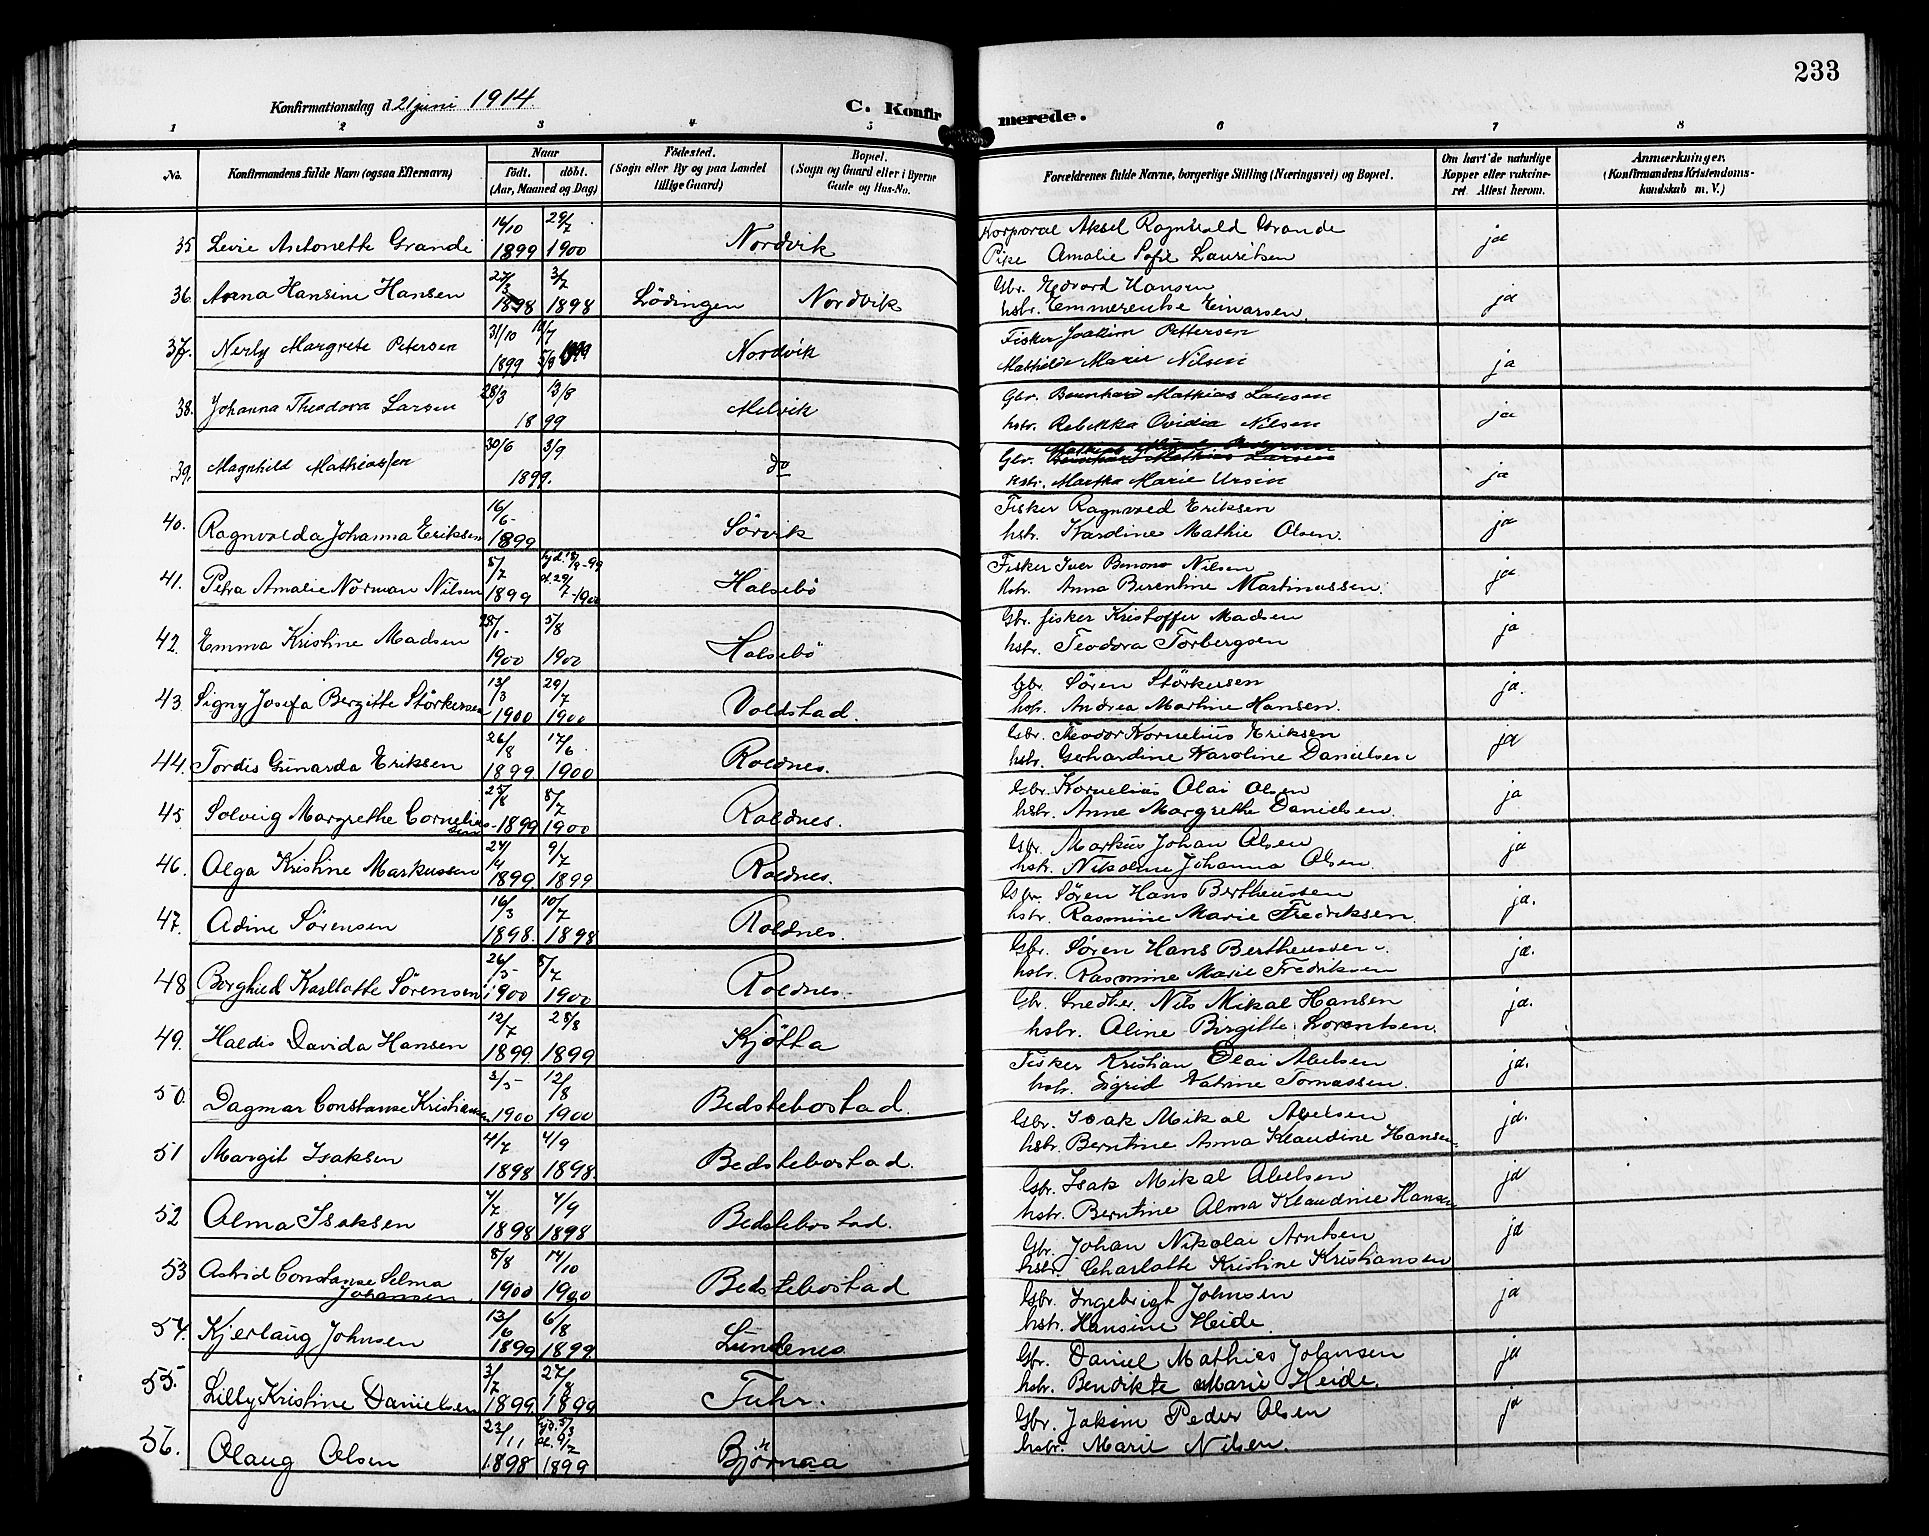 233
Konfirmationsdag d. 21 juni 1914.
C. Konfirmerede.
1 2 3 4 5 6 7 8
No.
Konfirmandens fulde Navn (ogsaa Efternavn)
Naar
födt. döbt.
(Aar, Maaned og Dag)
Födested.
(Sogn eller By og paa Landet
tillige Gaard)
Bopæl.
(Sogn og Gaard eller i Byerne
Gade og Hus-No.
Forældrenes fulde Navne, borgerlige Stilling (Næringsvei) og Bopæl.
Om havt de naturlige
Kopper eller vakcine-
ret. Attest herom.
Anmærkninger.
(Konfirmandens Kristendoms-
kundskab m. V.)
35 Antonette Grande 16/10 1899 29/7 1900 Nordvik Korporal Aksel Ragnvald Grande
Pike Amalie Sofie Lauritsen ja
36 Anna Hansine Hansen 27/3 1898 3/7 1898 Lödingen Nordvik Gbr. Edvard Hansen
hstr. Emmerentse Einarsen. ja
37. Nerly Margrete Petersen 31/10 1899 Nordvik Fisker Joakim Pettersen
Mathilde Marie Nilsen ja
38. Johanna Theodora Larsen 28/3 13/8 1899 Melvik Gbr. Bernhard Mathias Larsen
hstr. Rebekka Ovidia Nilsen ja
39. Magnhild Mathiassen 30/6 3/9 1899. do Gbr. Bernhard Mathias Larsen
hstr. Martha Marie Ursin ja
40. Ragnvalda Johanna Eriksen 16/6- 1899 Sörvik Fisker Ragnvald Eriksen
hstr. Kardine Mathie Olsen. ja
41. Petra Amalie Norman Nilsen 5/7 1899 29/7-1900 Halsebö Fisker Iver Benono Nilsen
hstr. Anna Berentine Martinussen. ja
42. Emma Kristine Madsen 28/1- 1900 5/8 1900 Halsebö Gbr. fisker Kristoffer Madsen
hstr. Teodora Torbergsen ja
43. Signy Josefa Bergitte Störkersen 13/3 1900 29/7 1900 Voldstad. Gbr. Søren Störkersen
hstr. Andrea Martine Hansen. ja.
44. Tordis Gunarda Eriksen 26/8 1899 17/6 1900 Roldnes. Gbr. Teodor Kornelius Eriksen
hstr. Gerhardine Karoline Danielsen ja
45. Solveig Margrethe Corneliussen 25/8 1899 8/7 1900 Roldnes. Gbr. Kornelius Olai Olsen
hstr. Anne Margrethe Danielsen. ja
46. Olga Kristine Markussen 24/4 1899 9/7 1899 Roldnes. Gbr. Markus Johan Olsen
hstr. Nikoline Johanna Olsen. ja
47. Adine Sørensen 16/3 1898. 10/7 1898 Roldnes. Gbr. Søren Hans Bertheussen
hstr. Rasmine Marie Fredriksen. ja.
48 Borghild Karllotte Sörensen 26/5- 1900 8/7 1900 Roldnes. Gbr. Søren Hans Bertheussen
hstr. Rasmine Marie Fredriksen ja.
49. Haldis Davida Hansen 12/7 1899 28/8 1899 Kjötta Gbr. Snedker Nils Mikal Hansen
hsbr. Aline Birgitte Lorentsen. ja.
50. Dagmar Constanse Kristiansen 3/5- 1900 12/8 1900 Bedstebostad. Fisker Kristian Olai Abelsen
hstr. Sigrid Katrine Tomassen. ja.
51 Margit Isaksen 4/7 1898 4/9 1898. Bedstebostad. Gbr. Isak Mikal Abelsen
hstr. Berntine Anna Klaudine Hansen ja.
52 Alma Isaksen 4/7 1898 4/9 1898 Bedstebostad. Gbr. Isak Mikal Abelsen
hstr. Berntine Alma Klaudine Hansen ja
53 Astrid Constanse Selma
Johansen 8/8 1900 14/10 1900 Bedstebostad Gbr. Johan Nikolai Arntsen
hstr. Charlotte Kristine Kristiansen ja
54. Kjerlaug Johnsen 13/6 1899 6/8 1899. Lundenes Gbr. Ingebrigt Johnsen
hstr. Hansine Heide ja
55. Lilly Kristine Danielsen 3/7 1899 27/8 1899 Fuhr. Gbr. Daniel Mathias Johnsen
hstr. Bendikte Marie Heide. ja
56. Olaug Olsen 23/11 1898 9/7 1899 Björnaa Gbr. Jakim Peder Olsen
hstr. Marie Nilsen. ja